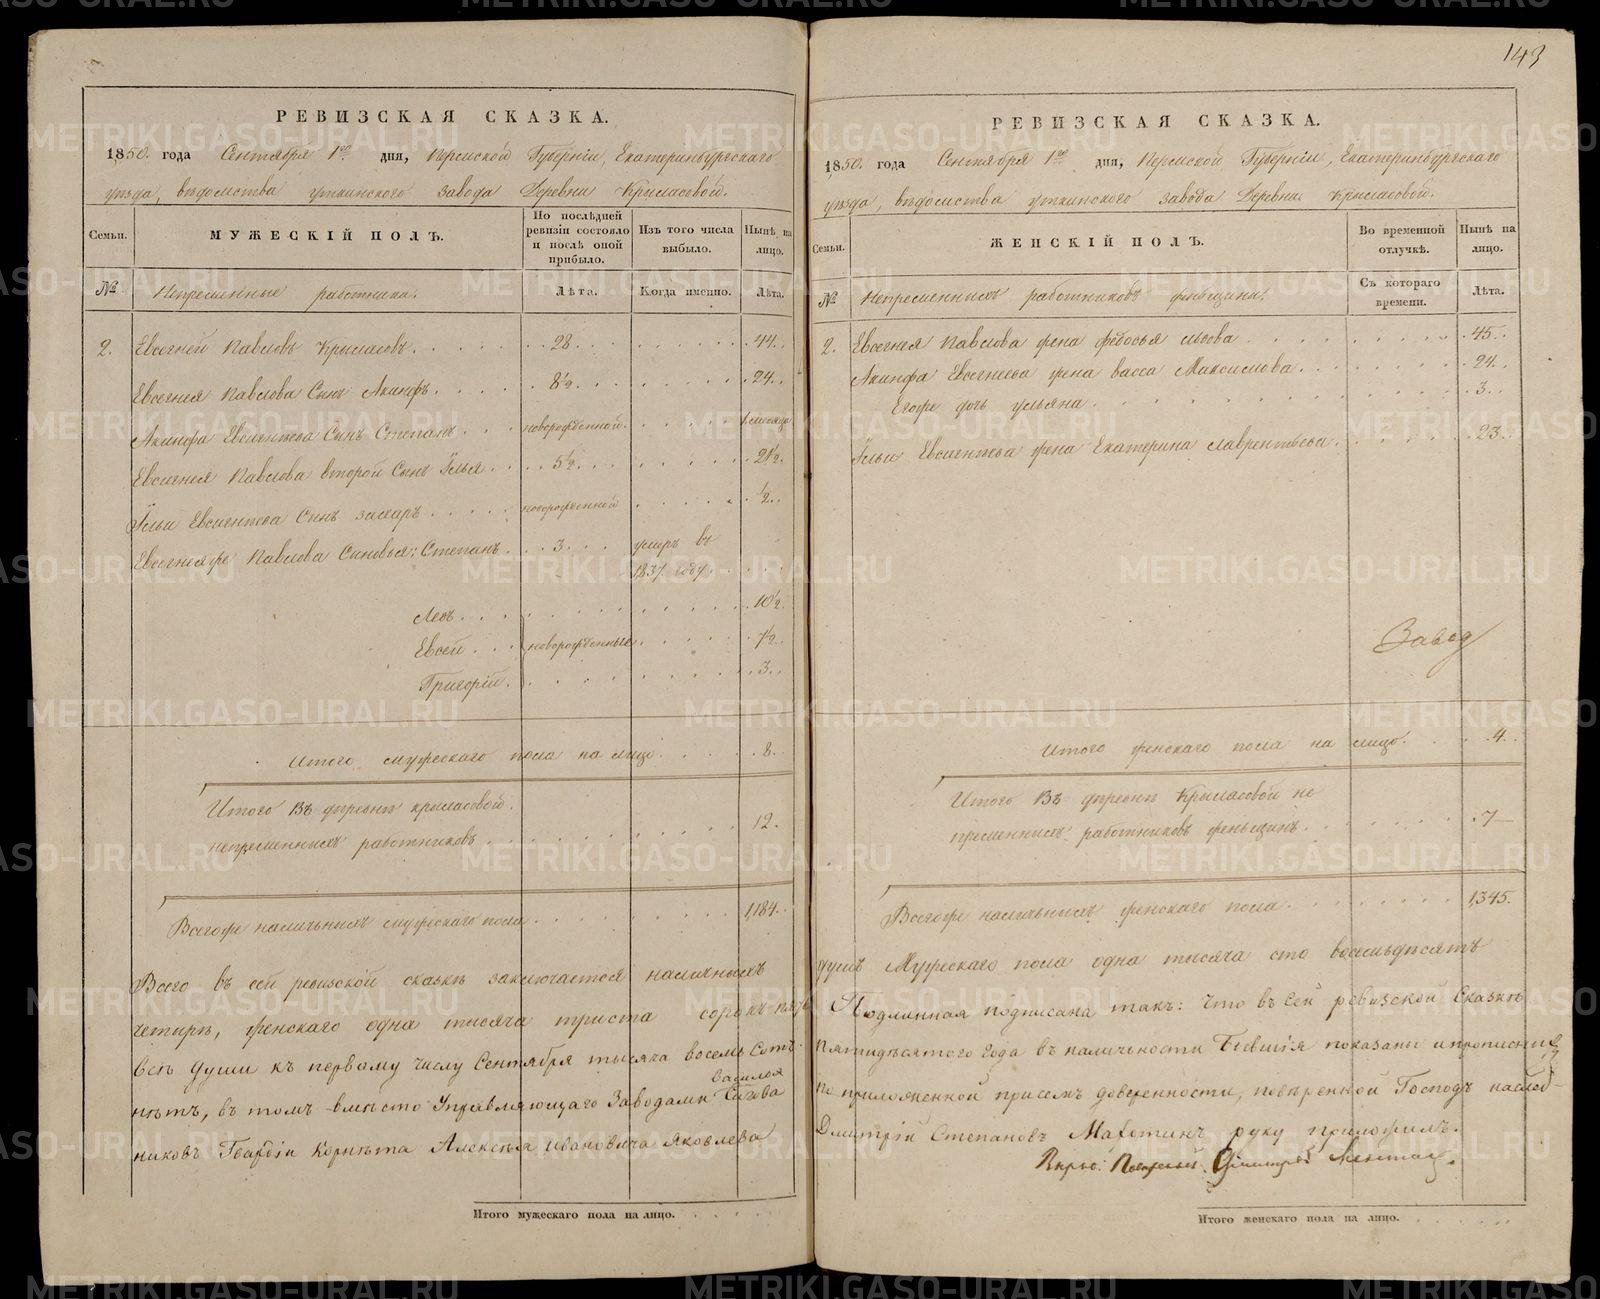 143
РЕВИЗСКАЯ СКАЗКА.
1850. года Сентября 1го дня, Пермской Губернiи, Екатеринбургскаго
уѣзда, вѣдомства Уткинскаго завода Деревни Крыласовой.
Семьи.
МУЖЕСКIЙ ПОЛЪ.
По послѣдней ревизiи состояло и послѣ оной прибыло.
Изъ того числа выбыло.
Нынѣ на лицо.
№
Непременные работники.
Лѣта.
Когда именно.
Лѣта.
2. Евсегней Павловъ Крыласовъ. 28. 44.
Евсегнея Павлова Сынъ Акинфъ. 8½. 24.
Акинфа Евсегнеева Сынъ Степанъ новорожденной. 1 месяцъ
Евсегнея Павлова второй Сынъ Илья. 5½. 21½.
Ильи Евсегнеева Сынъ Захаръ новорожденной ½.
Евсегнея же Павлова Сыновья: Степанъ. 3. умеръ въ
1837 году.
Левъ. 10½.
Евсей новорожденные 7½.
Григорiй. 3.
Итого мужескаго пола на лицо. 8.
Итого Въ деревнѣ Крыласовой
непременныхъ работниковъ 12.
Всего же наличныхъ мужескаго пола 1,184.
Всего въ сей ревизской сказкѣ заключается наличныхъ
четыре, женскаго одна тысяча триста сорокъ пять
Всѣ души къ первому числу Сентября тысяча восемь сотъ
Василья
нѣтъ, въ томъ вмѣсто Управляющаго Заводами Сигова
никовъ Гвардiи Корнета Алексѣя Ивановича Яковлева
Итого мужескаго пола на лицо.
РЕВИЗСКАЯ СКАЗКА.
1850. года Сентября 1го дня, Пермской Губернiи, Екатеринбургскаго
уѣзда, вѣдомства Уткинскаго завода Деревни Крыласовой.
Семьи.
ЖЕНСКIЙ ПОЛЪ.
Во временной отлучкѣ.
Нынѣ на лицо.
№
Непременныхъ работниковъ женщины.
Съ котораго времени.
Лѣта.
2. Евсегнея Павлова жена Федосья Львова 45.
Акинфа Евсегнеева жена Васса Максимова 24.
Егоже дочь Ульяна 3.
Ильи Евсегнеева жена Екатерина Лаврентьева. 23.
Завод
Итого женскаго пола на лицо. 4.
Итого Въ деревнѣ Крыласовой не
пременныхъ работниковъ женщинъ. 7
Всегоже наличныхъ женскаго пола 1,345.
душъ Мужескаго пола одна тысяча сто восемьдесятъ
Подлинная подписана такъ: Что въ сей ревизской Сказкѣ
Пятидесятого года въ наличности Бывшiя показаны и прописки
по приложенной присемъ доверенности, повѣренной Господъ наслѣд-
Дмитрiй Степановъ Махоткинъ руку приложилъ.
Итого женскаго пола на лицо.
METRIKI.GASO-URAL.RU